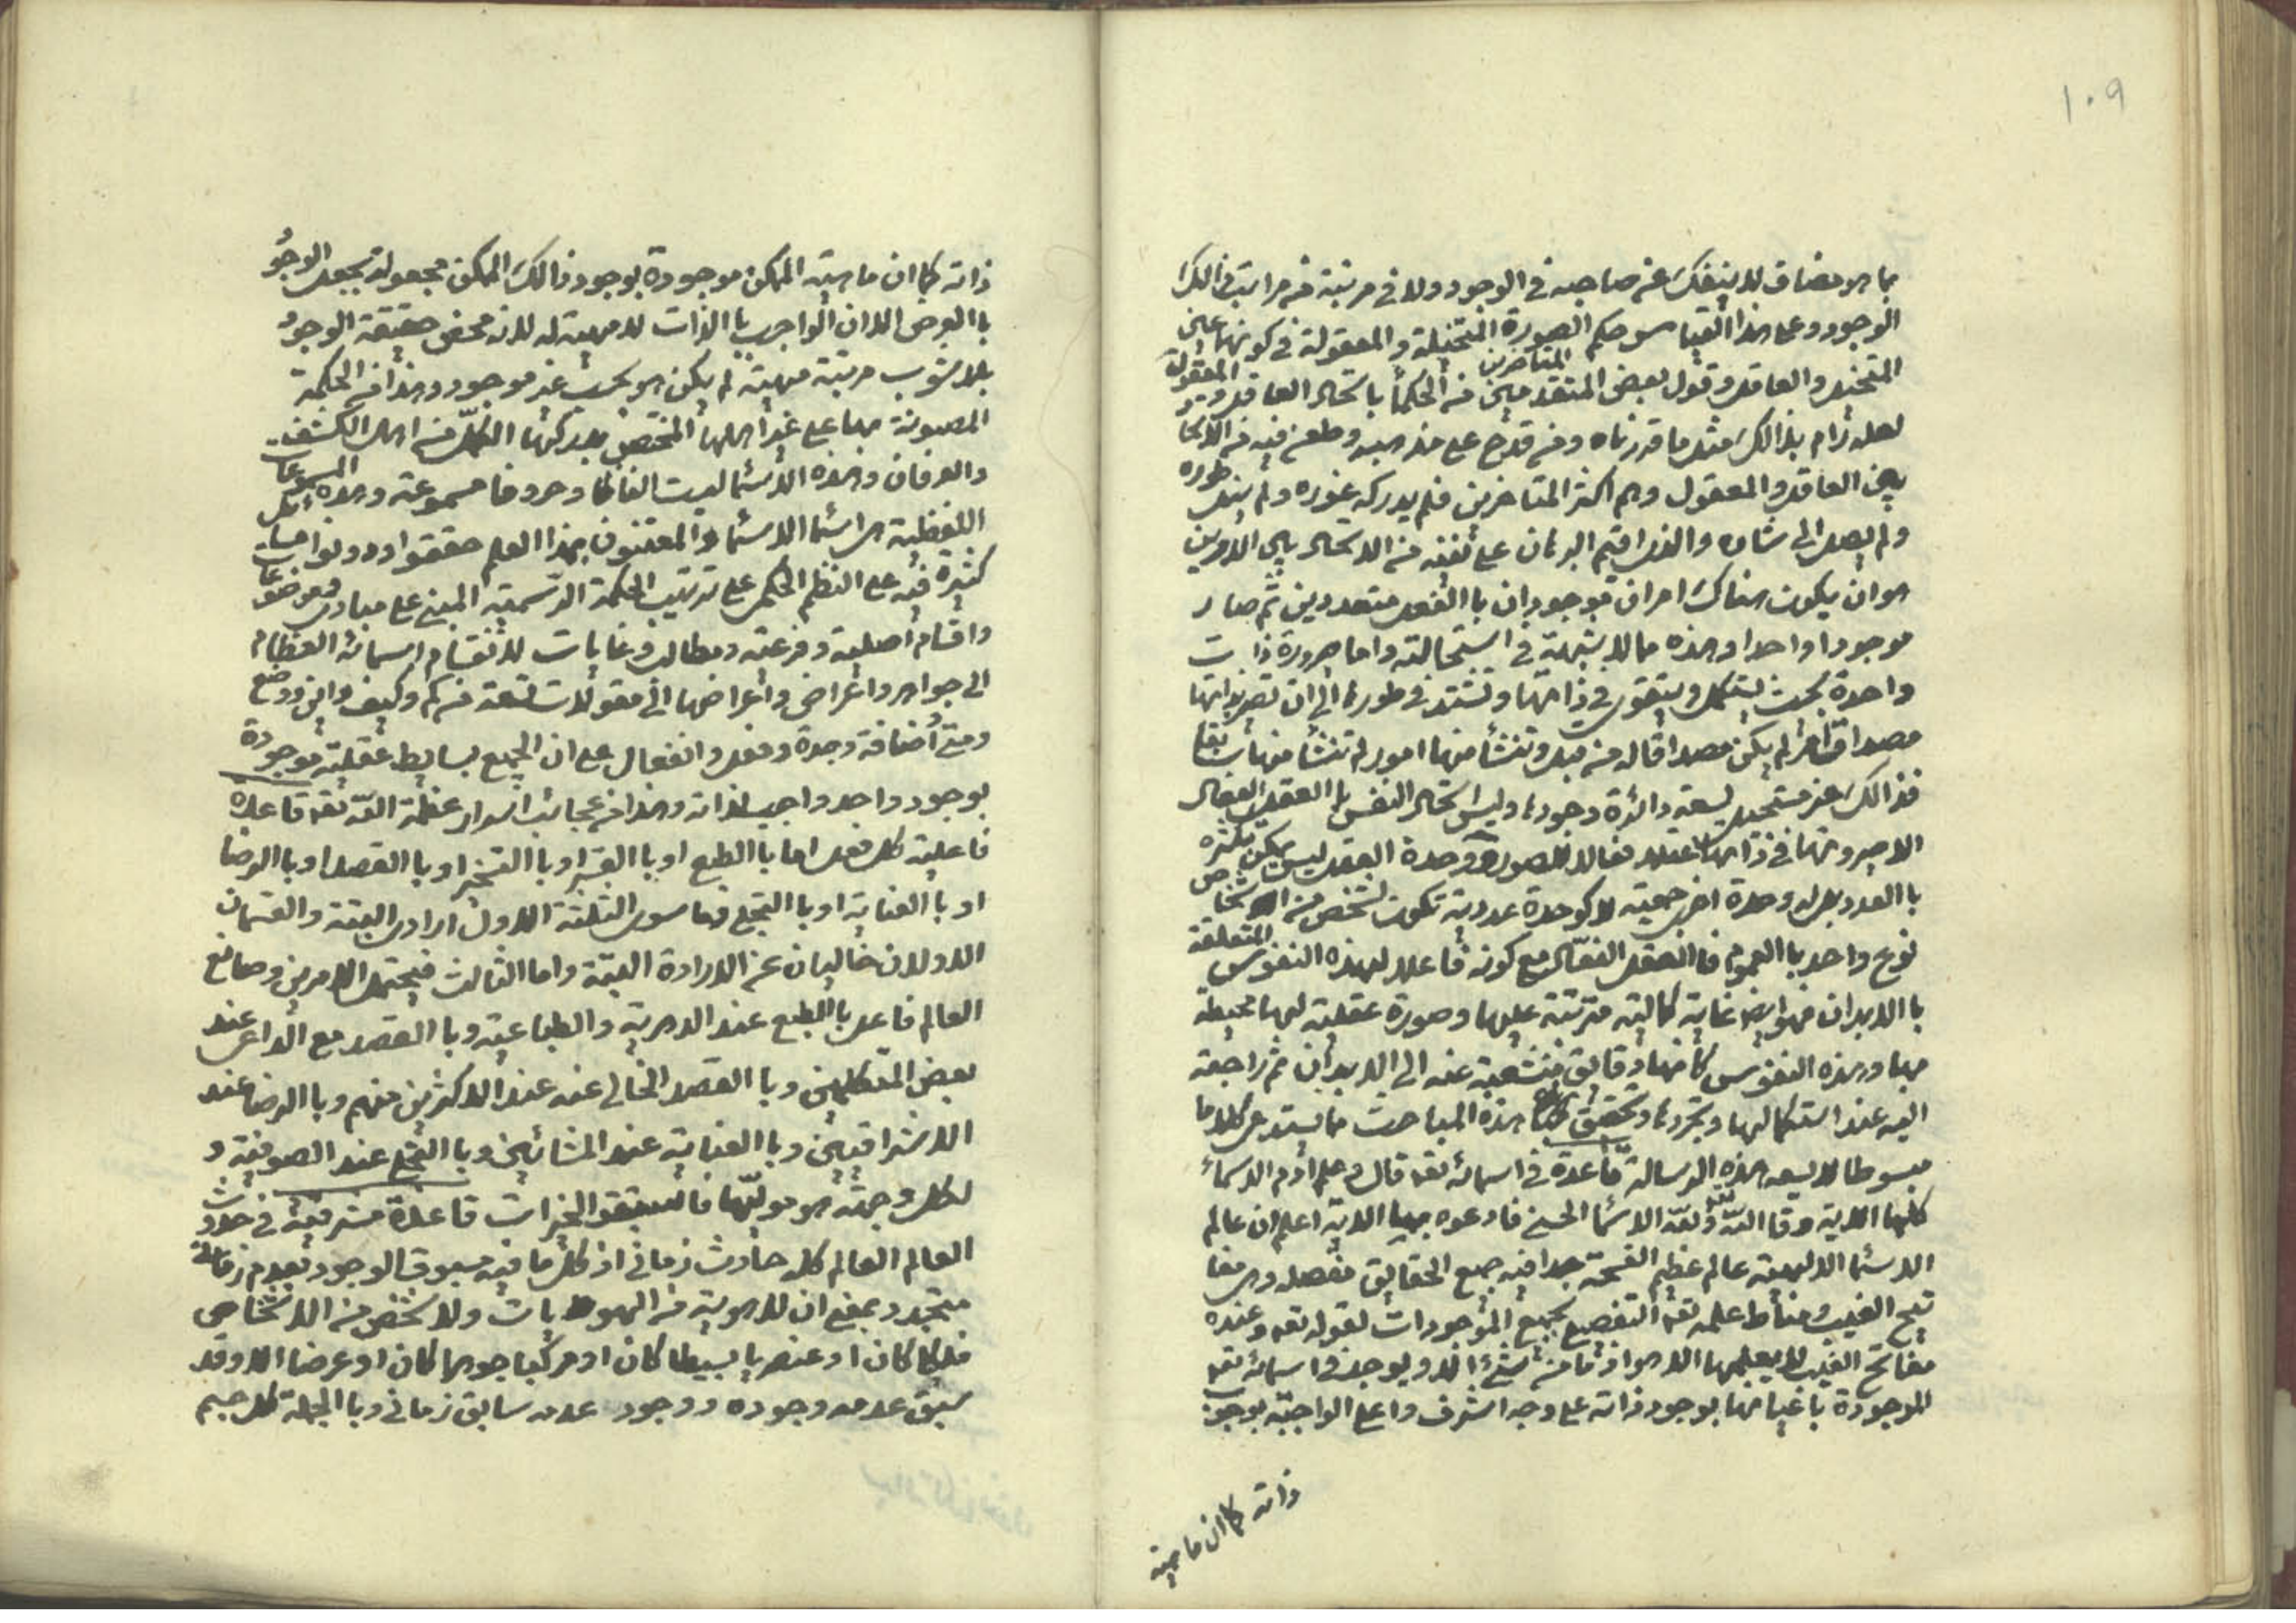 ١٠٩
بما هو مضاف لا ينفك عن صاحبه في الوجود ولا في مرتبة من مراتب ذالك
الوجود وعلى هذا القياس حكم الصورة المتخيلة والمعقولة في كونها عين
المتخيل والعاقل وقول بعض المتقدمين من الحكما باتحاد العاقل والمعقول
المتاخرين
لعله رام بذالك مثل ما قررناه ومن قدح على مذهبه وطعن فيه في الاتحاد
بين العاقل والمعقول وهم اكثر المتاخرين فلم يدرك غوره ولم ينل طوره
ولم يصل الى شاوه والذى اقيم البرهان على نفيه من الاتحاد بين الامرين
هو ان يكون هناك امران موجودان باالفعل متعددين ثم صار
موجودا واحدا وهذه مما لا شبهة في استحالته واما صيرورة ذات
واحدة بحيث يستكمل ويتقوى في ذاتها وتشتد في طورها الى ان تصير بذاتها
مصداق امر لم يكن مصداقا له من قبل وتنشأ منها امور لم تنشأ منها سابقا
فذالك غير مستحيل لسعة دائرة وجودها وليس اتحاد النفس باالعقل الفعال
الا صيرورتها في ذاتها عقلا فعالا للصور ووحدة العقل ليس يمكن تكثره
باالعدد بل له وحدة اخرى جمعية لا كوحدة عددية تكون لشخص من اشخاص
نوع واحد باالعموم فاالعقل الفعال مع كونه فاعلا لهذه النفوس المتعلقة
باالابدان فهو ايضا غاية كمالية مترتبة عليها وصورة عقلية لها محيطة
بها وهذه النفوس كأنها رقايق منشعبة عنه الى الابدان ثم راجعة
اليه عند استكمالها وتجردها وتحقيق هذه المباحث مما يستدعى كلاما
مبسوطا لا يسعه هذه الرسالة قاعدة في اسمائه تعه قال وعلم ادم الاسماء
كلها الاية وقا الله ولله الاسما الحسنى فادعوه بها الاية اعلم ان عالم
الاسما الالهية عالم عظيم الفسحة جدا فيه جميع الحقايق مفصله وهى مفا
تيح الغيب ومناط علمه تعه التفصيلى بجميع الموجودات لقوله تعه وعنده
مفاتح الغيب لا يعلمها الا هو اذ ما من شئ الا ويوجد في اسمائه تعه
الموجودة باعيانها بوجود ذاته على وجه اشرف واعلى الواجبة بوجوب
ذاته كما ان ماهية
ذاته كما ان ماهية الممكن موجودة بوجود ذالك الممكن مجعولة بجعل الوجود
باالعرض الا ان الواجب باالذات لا مهية له لانه محض حقيقة الوجود
بلا شوب مرتبة مهية لم يكن هو بحسب غير موجود وهذا من الحكمة
المصونة بها على غير اهلها المختص بدركها الكمل من اهل الكشف
والعرفان وهذه الاسما ليست الفاظا وحروفا مسموعة وهذه المسموعات
اللفظية هى اسما الاسما والمعتنون بهذا العلم حققوا ودونوا مسائل
كثيرة فيه على النظم الحكمى على ترتيب الحكمة الرسمية المبنى على مبادى وموضوعات
واقسام اصلية وفرعية ومطالب وغايات لانقسام اسمائه العظام
الى جواهر واعراض واعراضها الى مقولات تسعة من كم وكيف واين ووضع
ومتى أضافة وجدة وفعل وانفعال على ان الجميع بسايط عقلية موجودة
بوجود واحد واجب لذاته وهذا من عجائب اسرار عظمة الله تعه قاعدة
فاعلية كل فعل اما باالطبع او باالقسر او باالتسخير او باالقصد او باالرضا
او باالعناية او باالتجلى فما سوى الثلثة الاول ارادى البتة والقسمان
الاولان خاليان عن الارادة البتة واما الثالث فيحتمل الامرين وصانع
العالم فاعل باالطبع عند الدهرية والطباعية وباالقصد مع الداعى عند
بعض المتكلمين وباالقصد الخالى عنه عند الاكثرين منهم وباالرضا عند
الاشراقيين وباالعناية عند المشائين وباالتجلى عند الصوفية و
لكل وجهة هو موليها فاستبقوا الخيرات قاعدة مشرقية في حدوث
العالم العالم كله حادث زمانى اذ كل ما فيه مسبوق الوجود بعدم زمانى
متجدد بمعنى ان لا هوية من الهويات ولا شخص من الاشخاص
فلكيا كان او عنصريا بسيطا كان او مركبا جوهرا كان او عرضا الا وقد
سبق عدمه وجوده ووجود عدمه سابق زمانى وباالجملة كل جسم